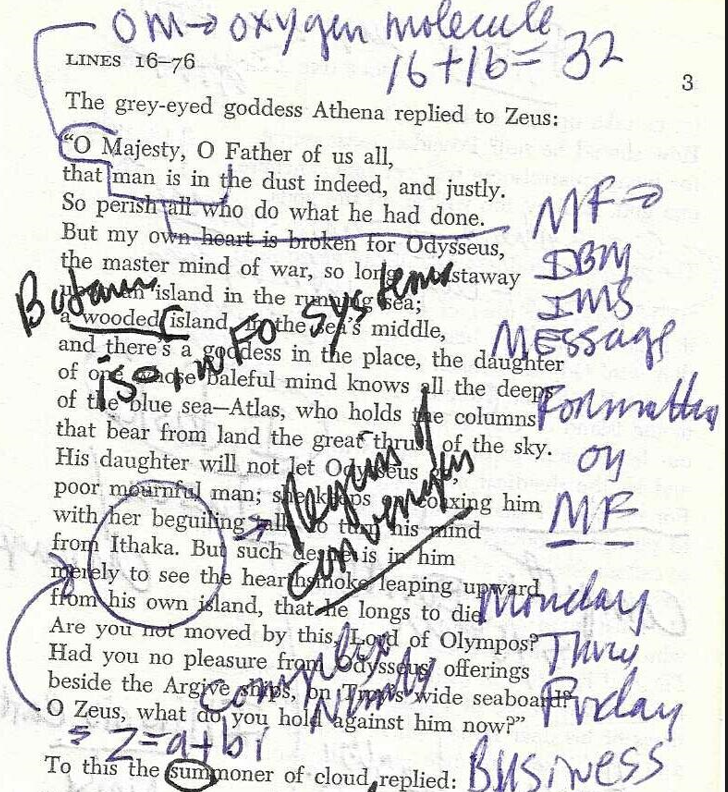 OM → oxygen molecule
16+16 = 32
LINES 16–76
3
The grey-eyed goddess Athena replied to Zeus:
"O Majesty, O Father of us all,
that man is in the dust indeed, and justly.
So perish all who do what he had done.
But my own heart is broken for Odysseus,
the master mind of war, so long a castaway
upon an island in the running sea;
a wooded island, in the sea's middle,
and there's a goddess in the place, the daughter
of one whose baleful mind knows all the deeps
of the blue sea—Atlas, who holds the columns
that bear from land the great thrust of the sky.
His daughter will not let Odysseus go,
poor mournful man; she keeps on coaxing him
with her beguiling talk, to turn his mind
from Ithaka. But such desire is in him
merely to see the hearthsmoke leaping upward
from his own island, that he longs to die.
Are you not moved by this, Lord of Olympos?
Had you no pleasure from Odysseus' offerings
beside the Argive ships, on Troy's wide seaboard?
O Zeus, what do you hold against him now?"
To this the summoner of cloud replied:
MF →
IBM
IMS
Message
Formatter
or
MF
Monday
Thru
Friday
Business
info systems
iso
converges
complex
= z = a + bi